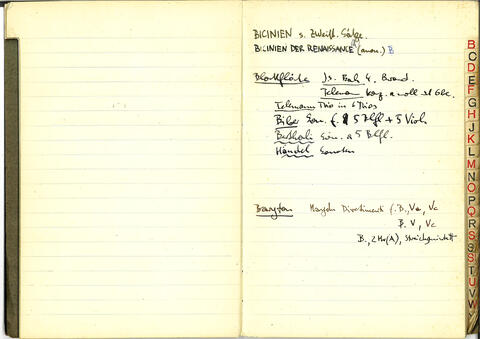 BICINIEN s. Zweist. Sätze.
BICINIEN DER RENAISSANCE (anon.) B
Blockflöte Js. Bach 4. Brand.
Telemann Konz. a moll
Telemann Trio in 6 Trios
Biber Son. f. 5 Blfl + 5 Viol
Bertholi Son. a 5 Blfl.
Händel Sonaten
Baryton Haydn Divertimenti f. B., Va, Vc
B. V, Vc
B., 2 Hr(A), Streichquintett
B
C
D
E
F
G
H
J
K
L
M
N
O
P
Q
R
S
S
T
U
V
W